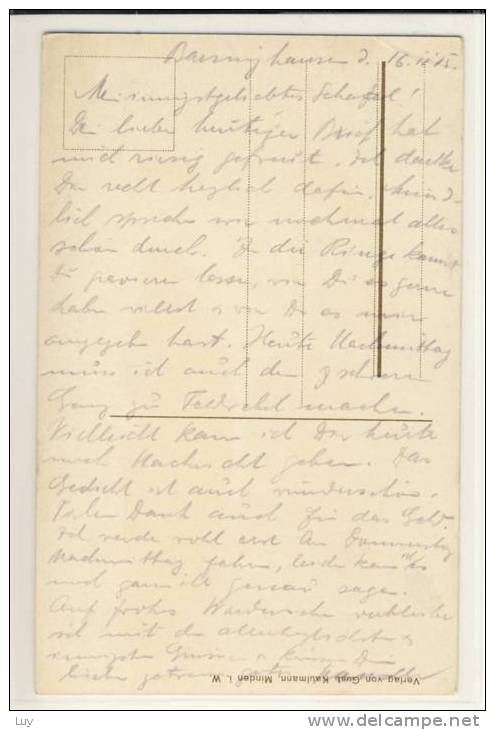 Barsinghausen d. 16. II 15.
Mein innigstgeliebtes Schatzel!
Dein lieber heutiger Brief hat
mich riesig gefreut, ich danke
Dir recht herzlich dafür. Münd-
lich sprechen wir nochmal alles
schön durch. In die Ringe kannst
Du gravieren lassen, was Du gerne
haben willst & wie Du es mir
angegeben hast. Heute Nachmittag
muss ich auch den schweren
Gang zu machen.
Vielleicht kann ich Dir heute
noch Nachricht geben. Das
Gedicht ist auch wunderschön.
Vielen Dank auch für das Geld.
Ich werde wohl erst am Donnerstag
Nachmittag fahren, leider kann ich es
noch gar nicht genau sagen.
Auf frohes Wiedersehn verbleibe
ich mit den allerherzlichsten &
innigsten Grüssen & Küssen Dein
lieber getreuer
Verlag von Gust. Kaulmann, Minden i. W.
Luy
delcampe.net